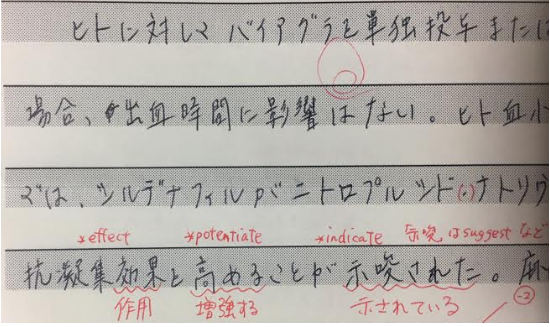 ヒトに対して バイアグラを単独投与または
場合、出血時間に影響はない。ヒト血小
では、シルデナフィルがニトロプルシド(:)ナトリウ
*effect *potentiate *indicate 示唆はsuggestなど
抗凝集効果を高めることが示唆された。麻
作用 増強する 示されている -2